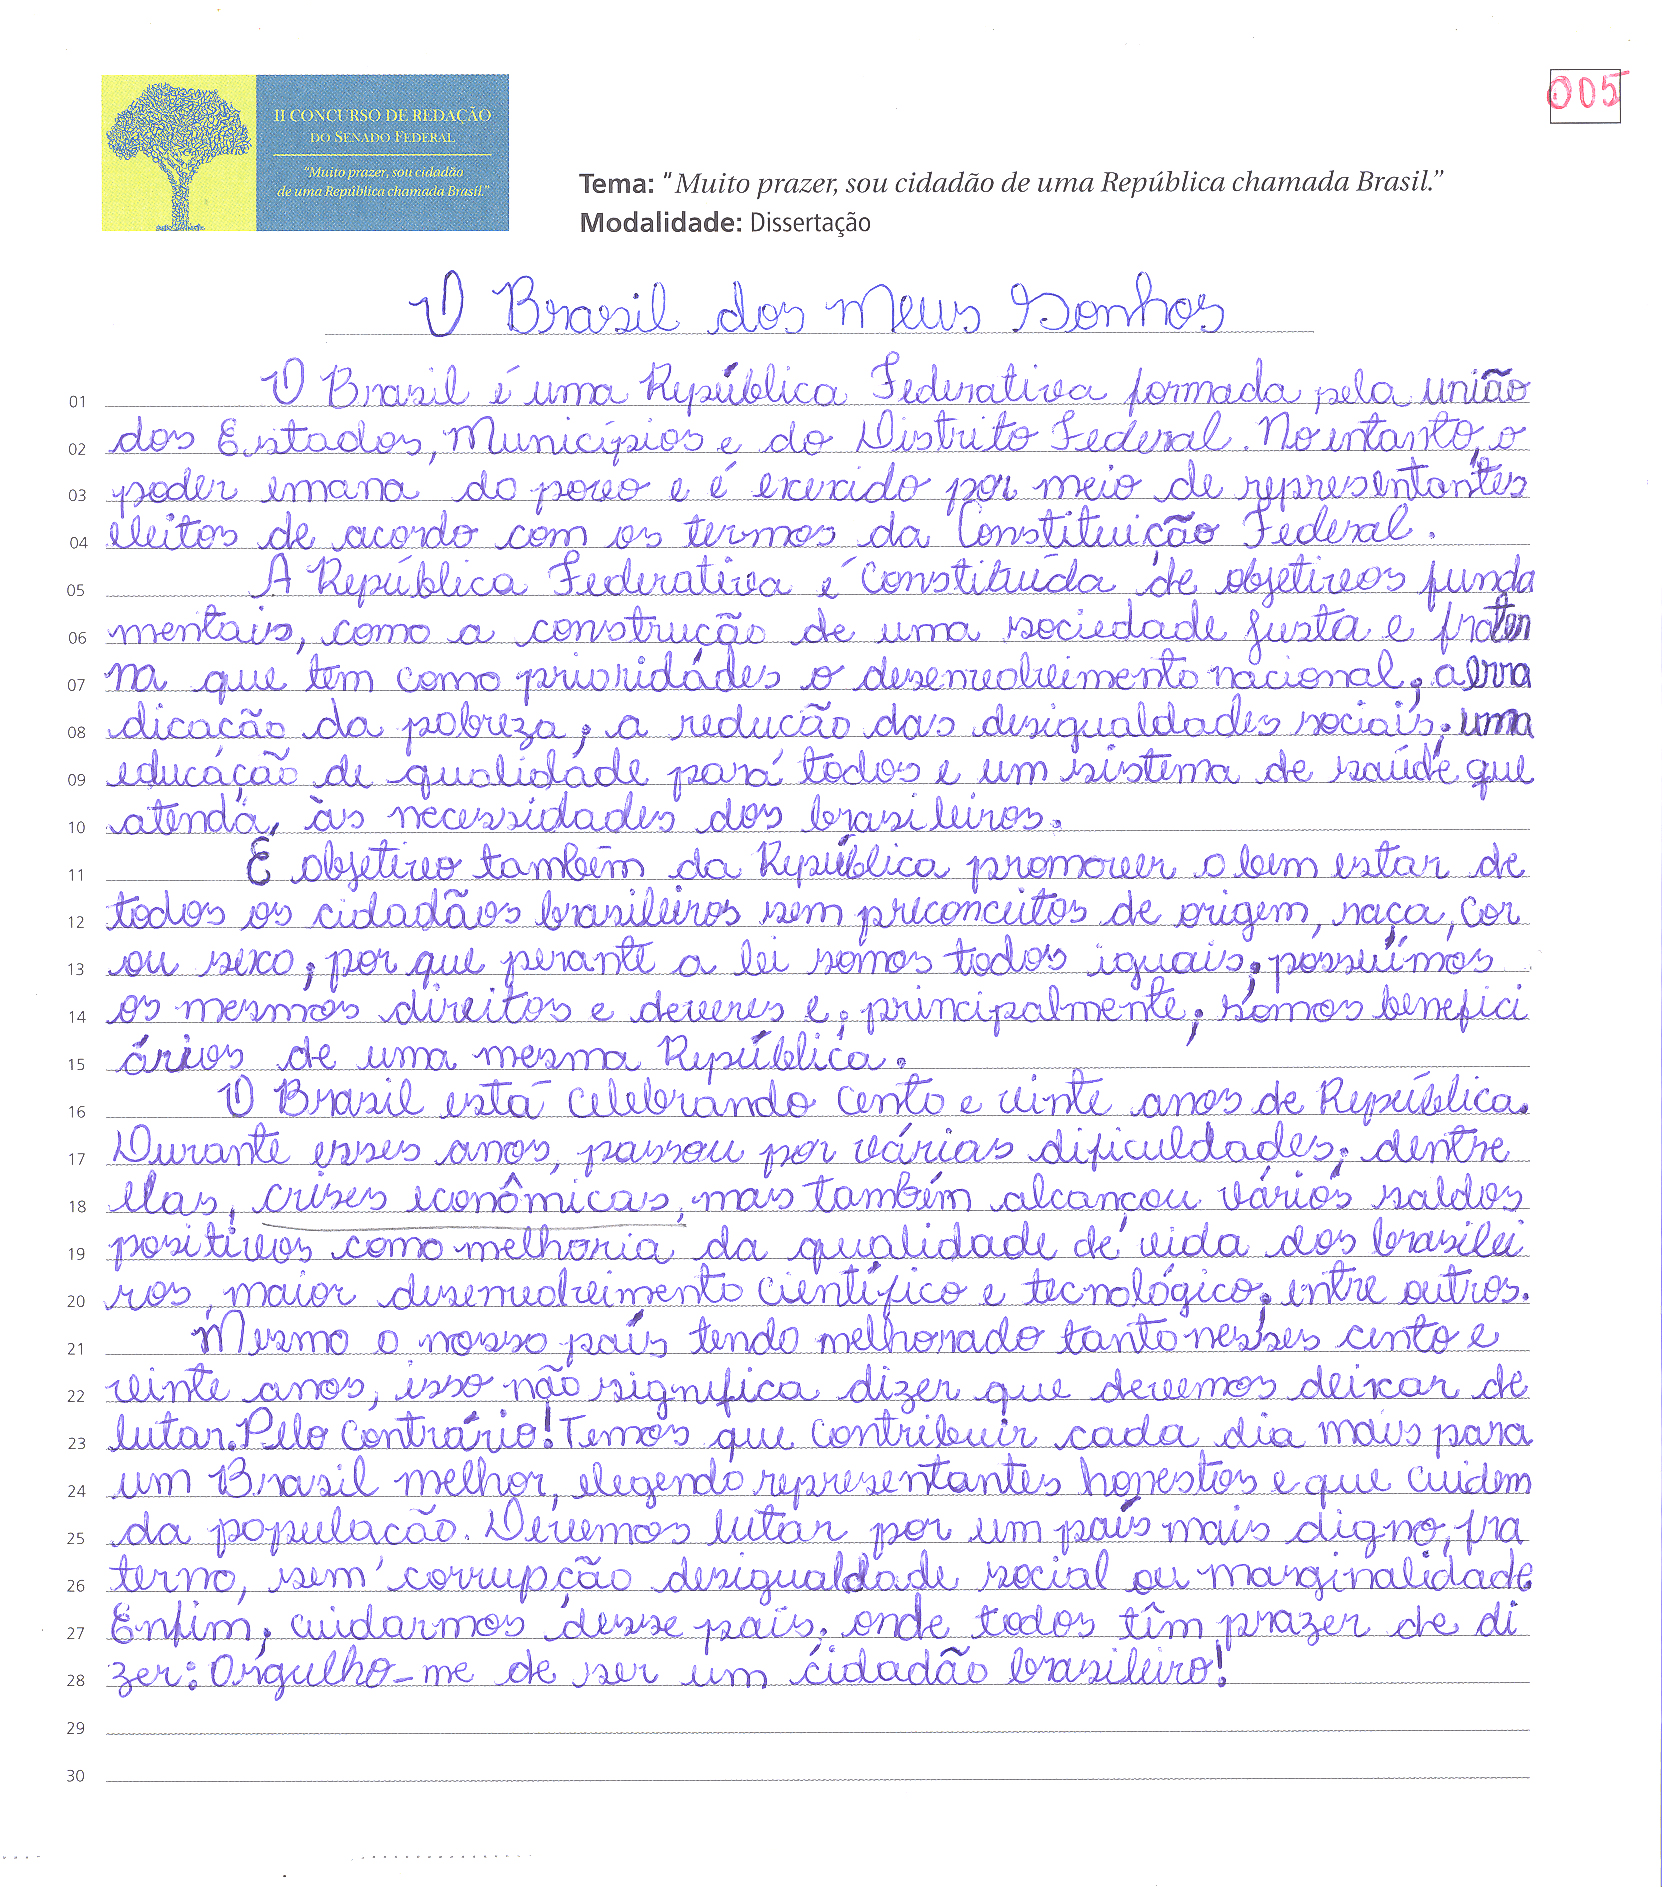 005
II CONCURSO DE REDAÇÃO
DO SENADO FEDERAL
"Muito prazer, sou cidadão
de uma República chamada Brasil."
Tema: "Muito prazer, sou cidadão de uma República chamada Brasil."
Modalidade: Dissertação
O Brasil dos Meus Sonhos
01 O Brasil é uma República Federativa formada pela união
02 dos Estados, Municípios e do Distrito Federal. No entanto, o
03 poder emana do povo e é exercido por meio de representantes
04 eleitos de acordo com os termos da Constituição Federal.
05 A República Federativa é constituída de objetivos funda
06 mentais, como a construção de uma sociedade justa e frater
07 na que tem como prioridades o desenvolvimento nacional, a erra
08 dicação da pobreza, a redução das desigualdades sociais, uma
09 educação de qualidade para todos e um sistema de saúde que
10 atenda, às necessidades dos brasileiros.
11 É objetivo também da República promover o bem estar de
12 todos os cidadãos brasileiros sem preconceitos de origem, raça, cor
13 ou sexo, por que perante a lei somos todos iguais, possuímos
14 os mesmos direitos e deveres e, principalmente, somos benefici
15 ários de uma mesma República.
16 O Brasil está celebrando cento e vinte anos de República.
17 Durante esses anos, passou por várias dificuldades, dentre
18 elas, crises econômicas, mas também alcançou vários saldos
19 positivos como melhoria da qualidade de vida dos brasilei
20 ros, maior desenvolvimento científico e tecnológico, entre outros.
21 Mesmo o nosso país tendo melhorado tanto nesses cento e
22 vinte anos, isso não significa dizer que devemos deixar de
23 lutar. Pelo contrário! Temos que contribuir cada dia mais para
24 um Brasil melhor, elegendo representantes honestos e que cuidem
25 da população. Devemos lutar por um país mais digno, fra
26 terno, sem corrupção desigualdade social ou marginalidade
27 Enfim, cuidarmos desse país, onde todos têm prazer de di
28 zer: Orgulho-me de ser um cidadão brasileiro!
29
30